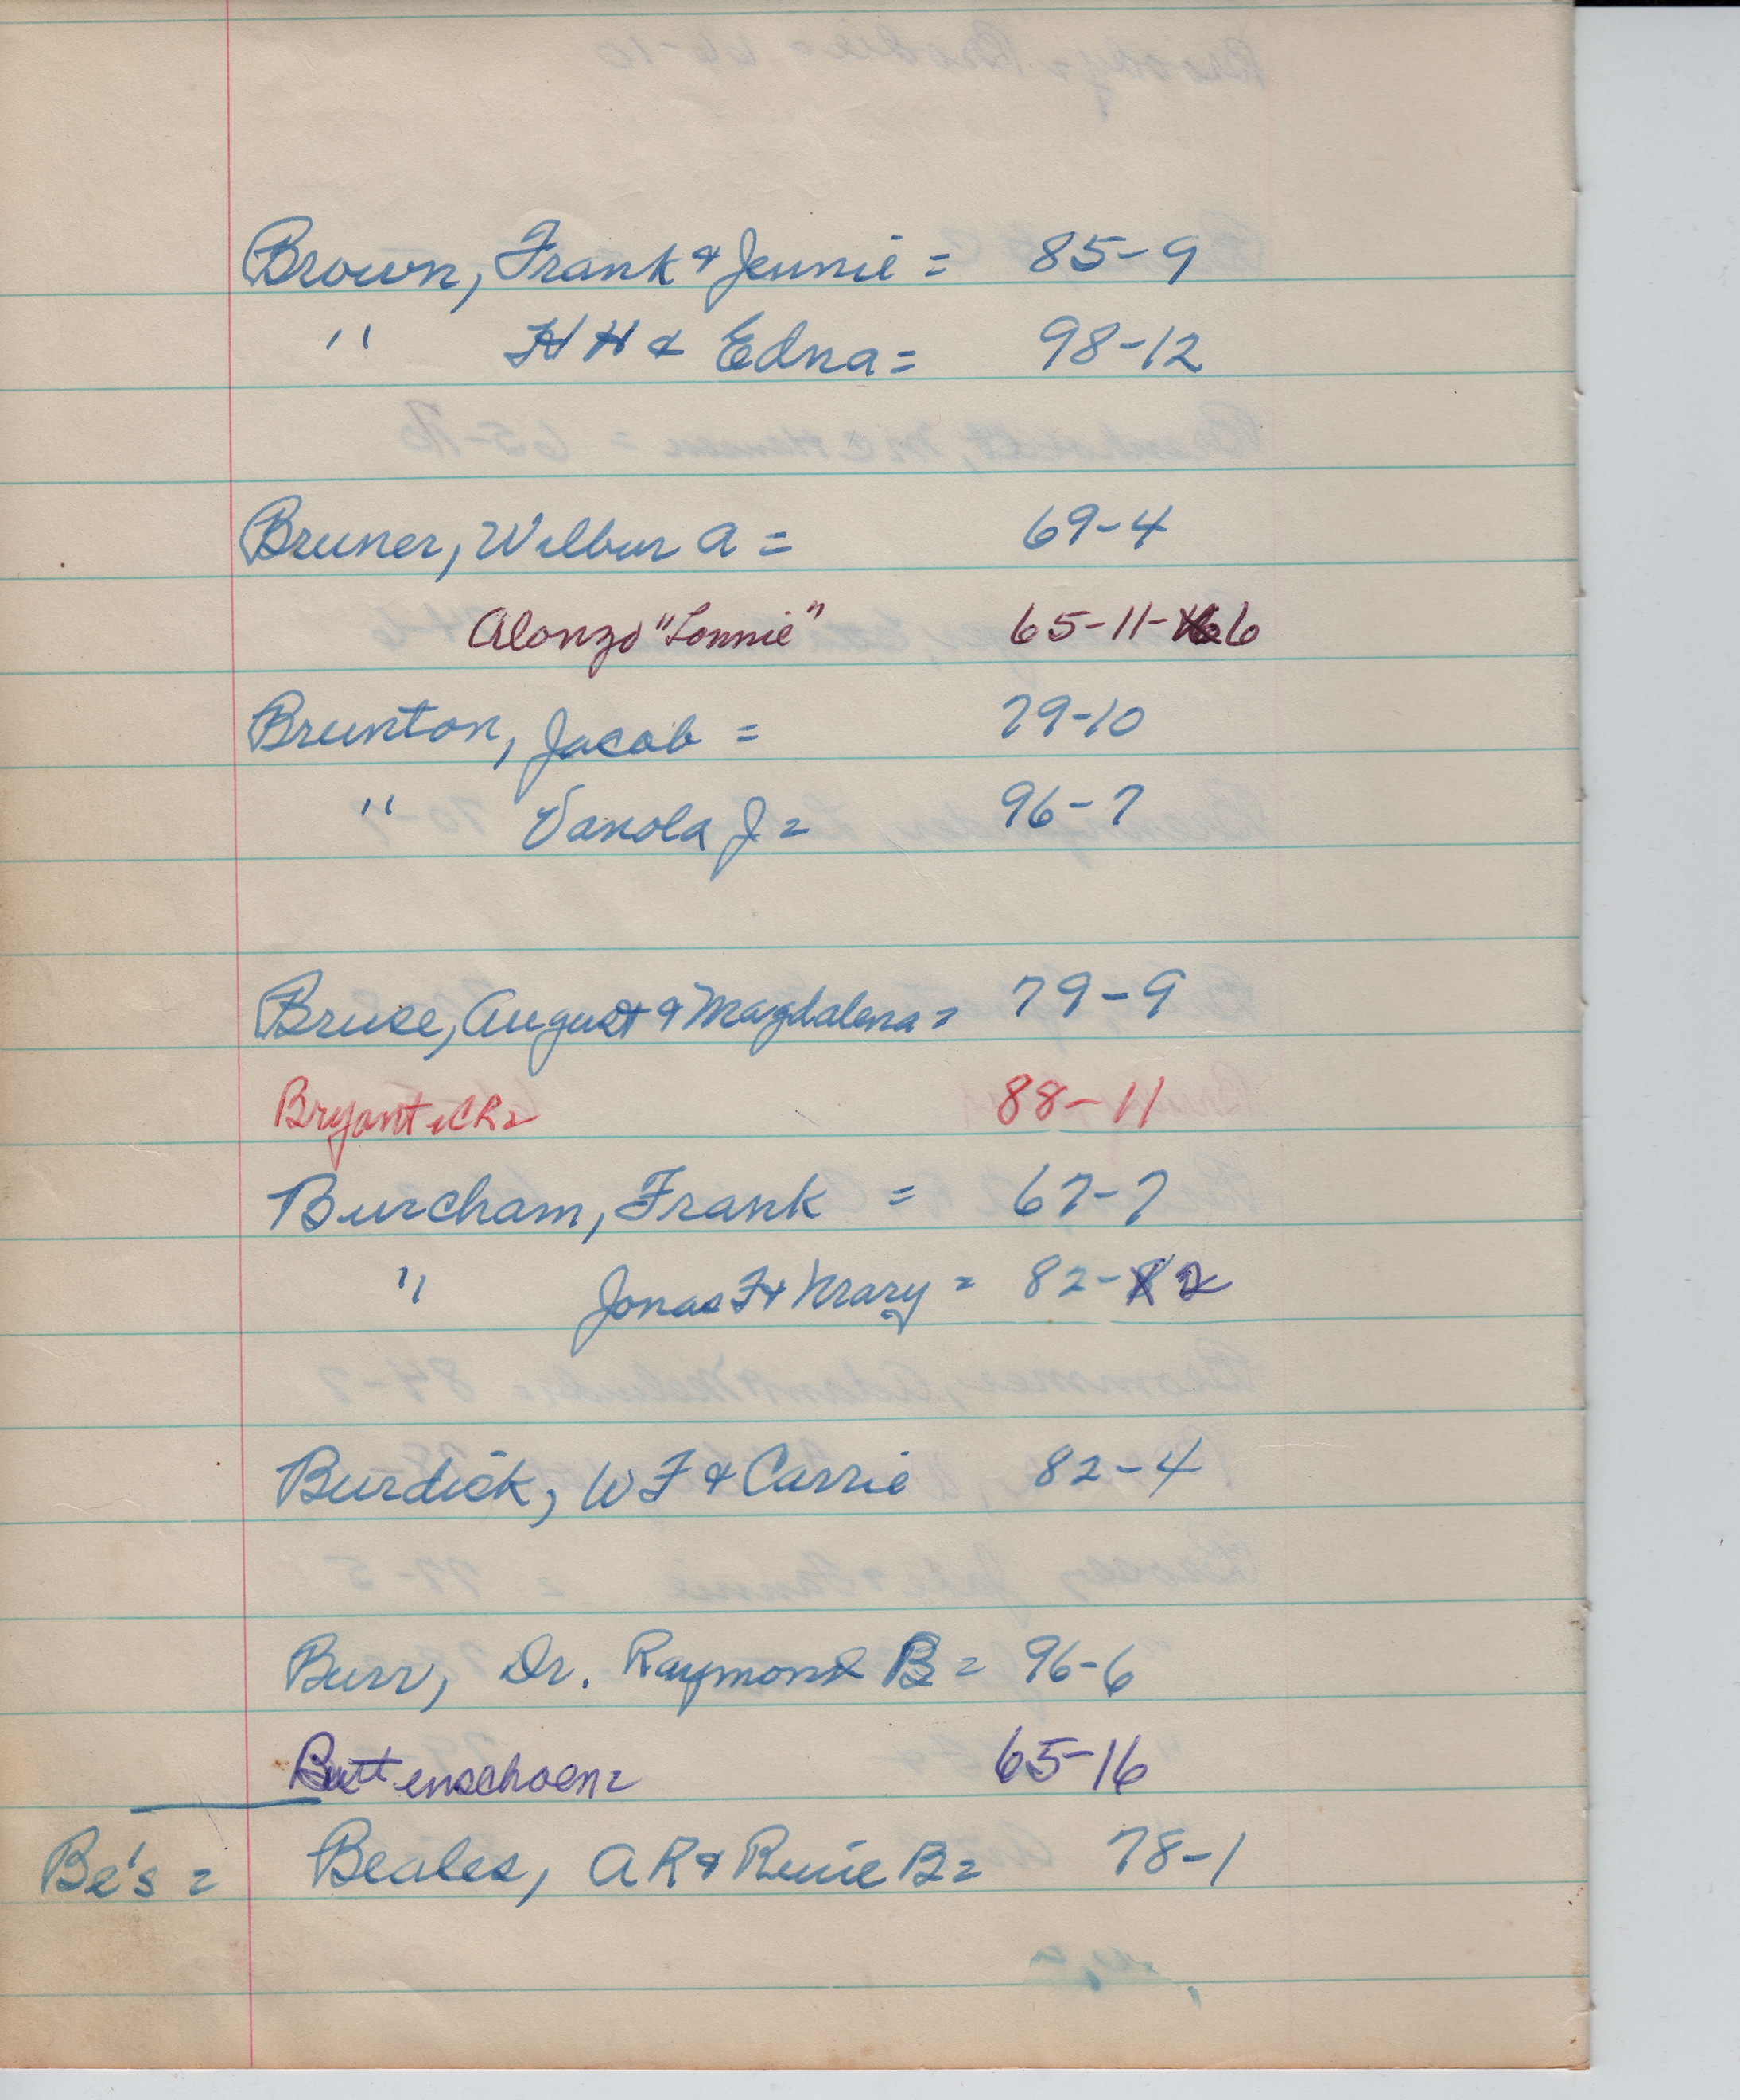 Brown, Frank & Jennie = 85-9
" H H & Edna = 98-12
Bruner, Wilbur A = 69-4
Alonzo "Lonnie" 65-11-6
Brunton, Jacob = 79-10
" Vanola J = 96-7
Bruse, August & Magdalena = 79-9
Bryant, CR = 88-11
Burcham, Frank = 67-7
" Jonas F & Mary = 82-2
Burdick, W F & Carrie 82-4
Burr, Dr. Raymond B = 96-6
Buttenschoen = 65-16
Be's = Beales, A R & B = 78-1